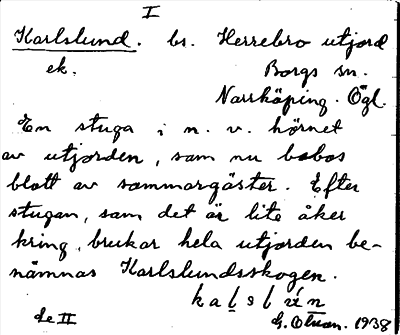 I
Karlslund. bs. Herrebro utjord
ek. Borgs sn.
Norrköping. Ögl.
En stuga i n. v. hörnet
av utjorden, som nu bebos
blott av sommargäster. Efter
stugan, som det är lite åker
kring, brukar hela utjorden be-
nämnas Karlslundsskogen.
de II G. Olson. 1938